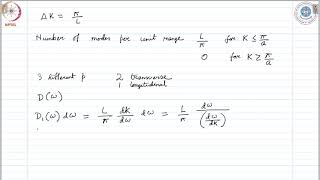 NPTEL
ΔK = π/L
Number of modes per unit range L/π for K ≤ π/a
0 for K ≥ π/a
3 different p 2 transverse
1 longitudinal
D(ω)
D₁(ω) dω = L/π dK/dω dω = L/π dω/(dω/dK)